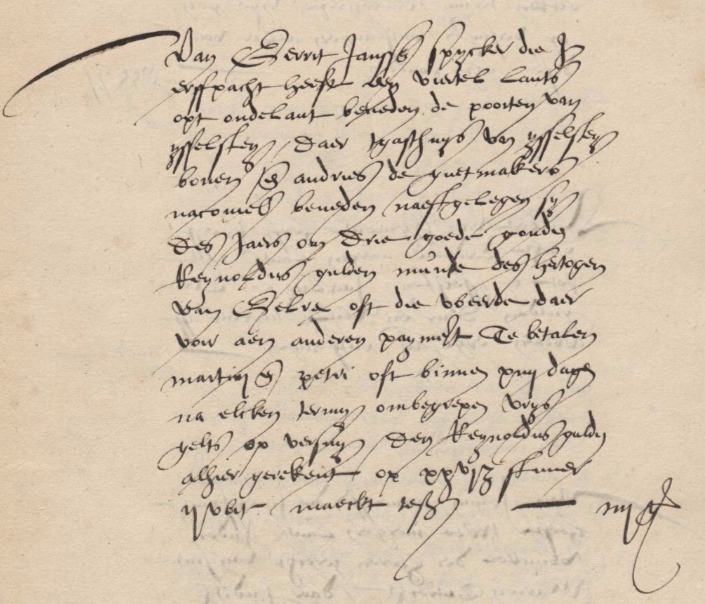 Van Gerrit Janssen spycker die in
erffpacht heeft een viertel lants
opt ondelant beneden de poorten van
ysselsteyn daer tgasthuys van ysselsteyn
boven en andries de guetmakers
nacomel beneden naestgelegen syn
des Jaers om drie goede gouden
Reynoldus gulden munte des hertogen
van Gelre oft die weerde daer
voir aen anderen payment Te betalen
martini en petri oft binnen xiiij dagen
na elcken termyn ombegrepen vrys
gelts op versuym den Reynoldus gulden
alhier gerekent op xxviij stuver
ij bit maeckt tessamen — iiij